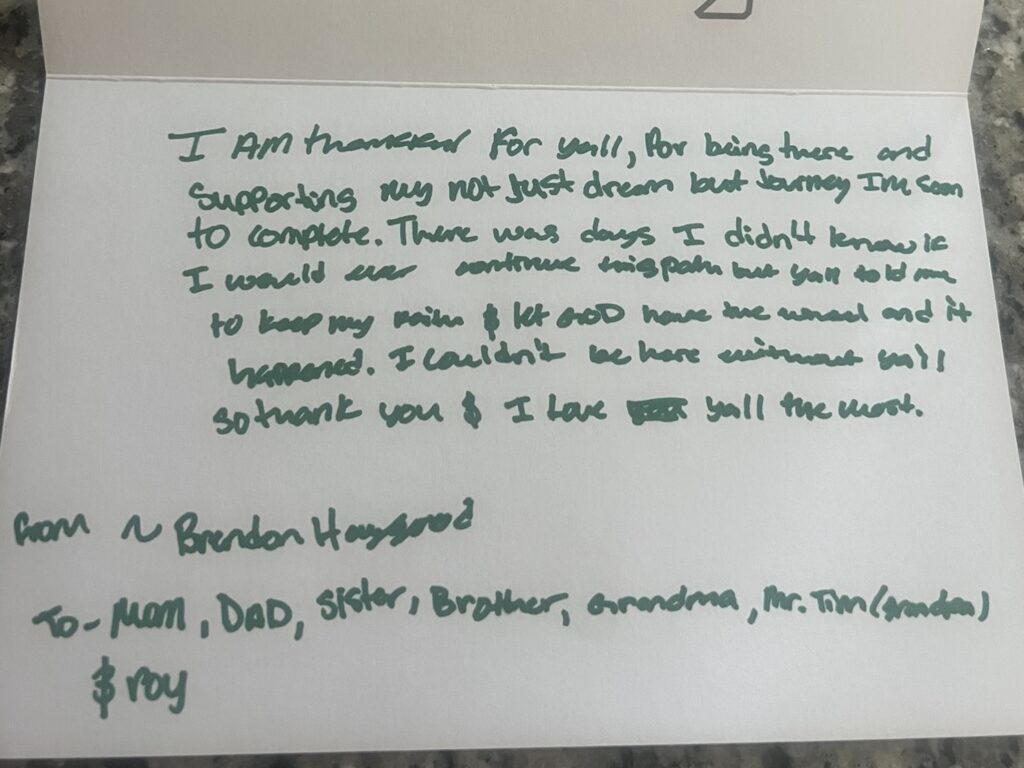 I AM thankful for yall, for being there and
supporting my not just dream but Journey Im soon
to complete. There was days I didn't know if
I would ever continue this path but yall told me
to keep my faith $ let GOD have the wheel and it
happened. I couldn't be here without yall
so thank you $ I Love yall the most.
from ~ Brendon Haygood
To- Mom, DAD, Sister, Brother, Grandma, Mr. Tim (grandpa)
$ roy